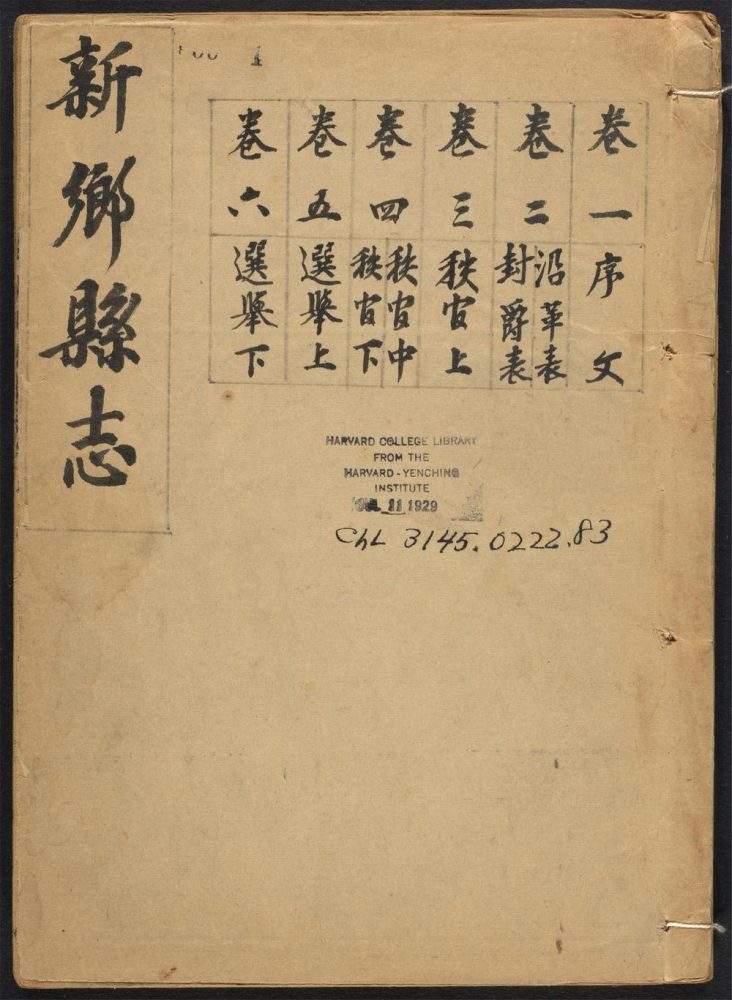 新鄉縣志
卷一 序文
卷二 沿革表 封爵表
卷三 秩官上
卷四 秩官中 秩官下
卷五 選舉上
卷六 選舉下
HARVARD COLLEGE LIBRARY
FROM THE
HARVARD-YENCHING
INSTITUTE
JUL 11 1929
ChL 3145.0222.83